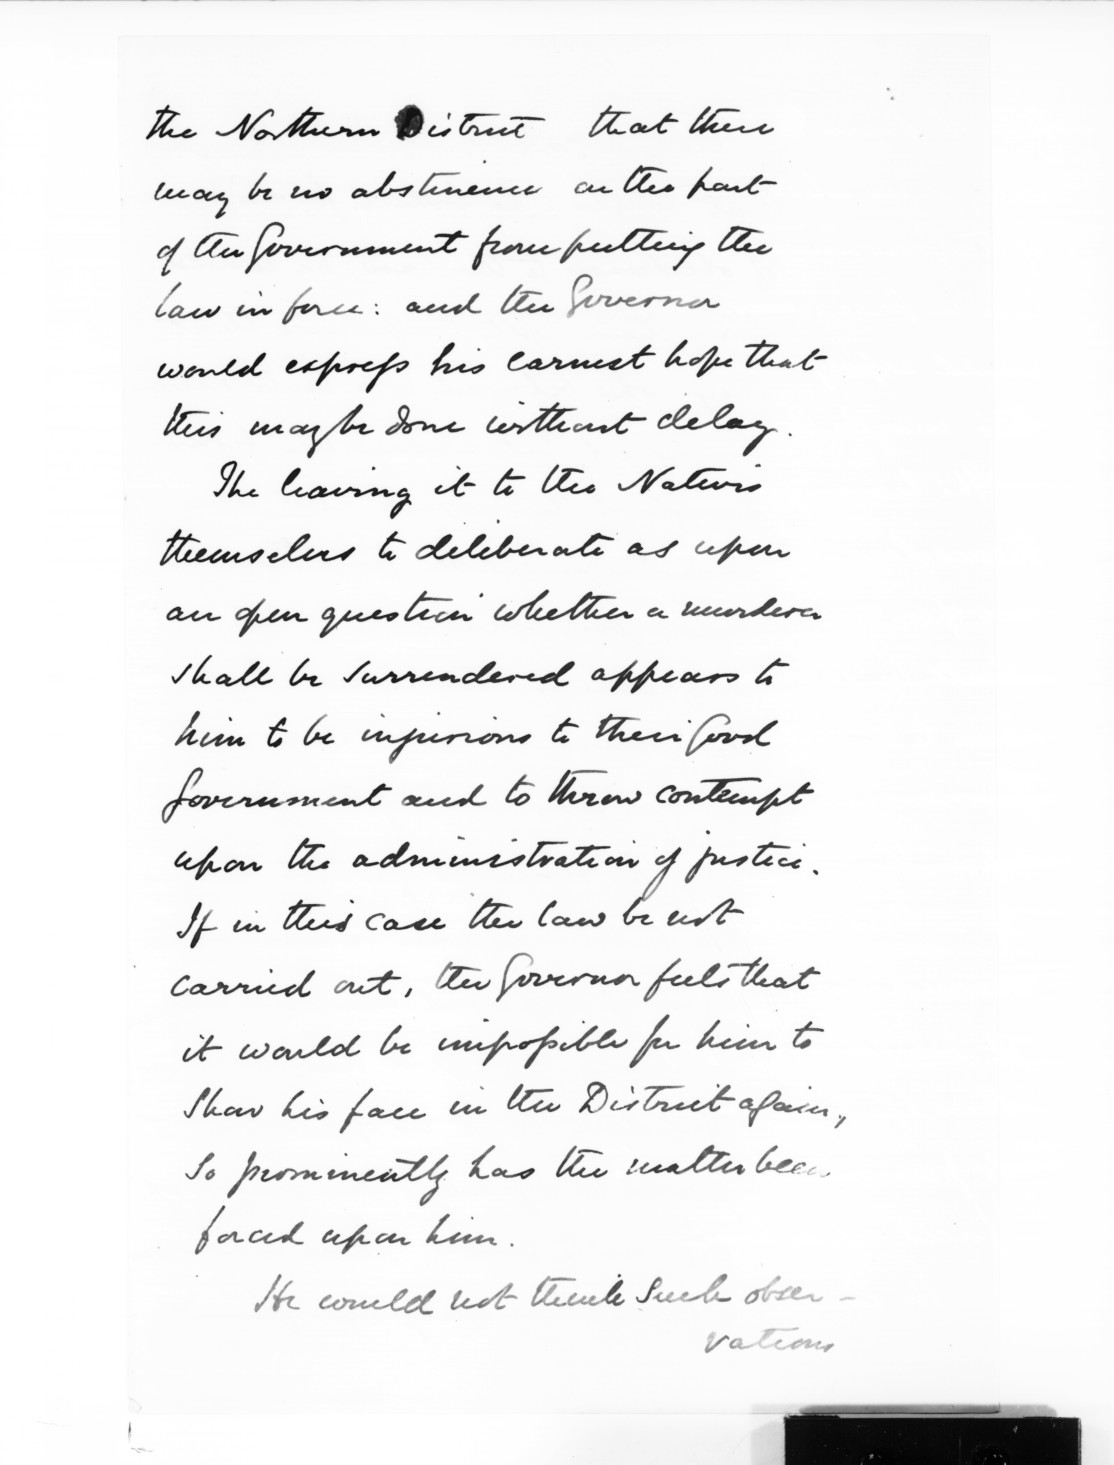 the Northern District that there
may be no abstinence on the part
of the Government from putting the
law in force: and the Governor
would express his earnest hope that
this may be done without delay.
The leaving it to the Natives
themselves to deliberate as upon
an open question whether a murderer
shall be surrendered appears to
him to be injurious to their Good
Government and to throw contempt
upon the administration of justice.
If in this case the law be not
carried out, the Governor feels that
it would be impossible for him to
Show his face in the District again,
So prominently has the matter been
forced upon him.
He would not think such obser-
vations